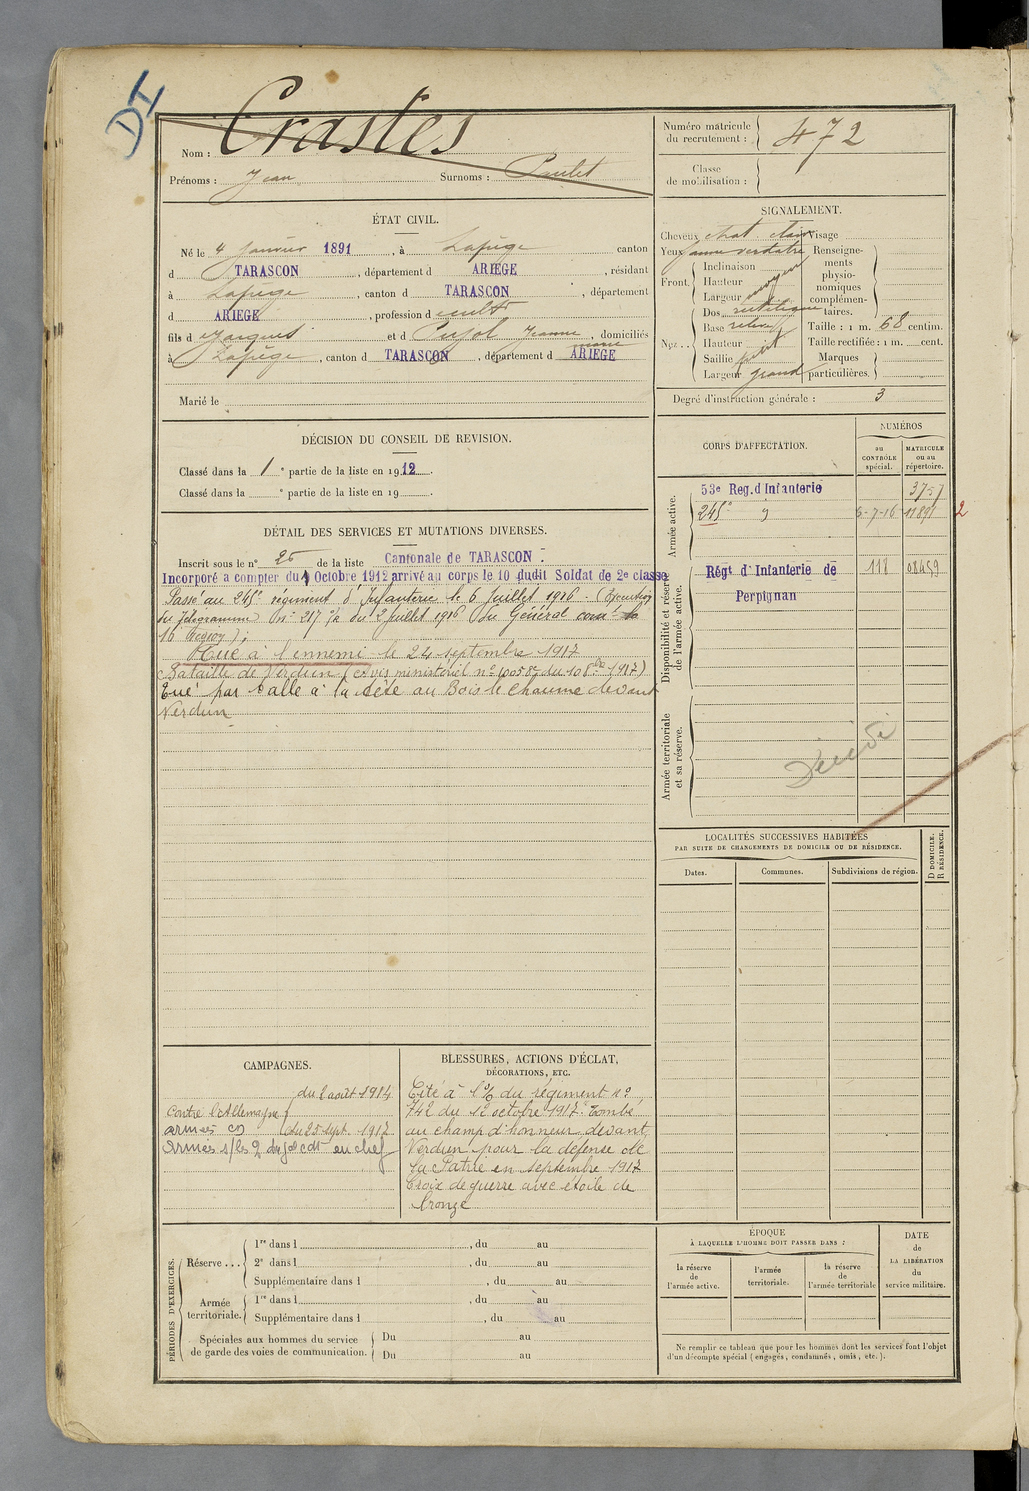 DI
Nom : Crastes
Prénoms : Jean Surnoms : Paulet
Numéro matricule du recrutement : 472
Classe de mobilisation :
ÉTAT CIVIL.
Né le 4 Janvier 1891, à Lapège canton
d TARASCON, département d ARIEGE, résidant
à Lapège, canton d TARASCON, département
d ARIEGE, profession d cultr
fils d et d Pujol Jeanne marie, domiciliés
à Lapège, canton d TARASCON, département d ARIEGE
Marié le
SIGNALEMENT.
Cheveux chat. clair Visage
Yeux jaune verdatre Renseigne-
Front. Inclinaison ments
Hauteur moyen physio-
Largeur nomiques
complémen-
Nez .. Dos rectiligne taires.
Base relevé Taille : 1 m. 68 centim.
Hauteur Taille rectifiée : 1 m. cent.
Saillie petit Marques
Largeur grand particulières.
Degré d'instruction générale : 3
DÉCISION DU CONSEIL DE REVISION.
Classé dans la 1 e partie de la liste en 1912.
Classé dans la e partie de la liste en 19 .
DÉTAIL DES SERVICES ET MUTATIONS DIVERSES.
Inscrit sous le n° 25 de la liste Cantonale de TARASCON.
Incorporé a compter du 9 Octobre 1912 arrivé au corps le 10 dudit Soldat de 2e classe
Passé au 245e régiment d'Infanterie le 6 Juillet 1916. (Execution
du Télégramme N° 217 du 2 Juillet 1916 du Général comt la
16 Région);
Tué à l'ennemi le 24 septembre 1917
Bataille de Verdun (avis ministériel n° du 10 8bre 1917)
Tué par balle à la tête au Bois le Chaume devant
Verdun
CORPS D'AFFECTATION.
NUMÉROS
au CONTRÔLE spécial.
MATRICULE ou au répertoire.
Armée active.
53e Reg. d'Infanterie 3757
245e 6-7-16 11891 2
Disponibilité et réserve de l'armée active.
Régt d'Infanterie de 118 08459
Perpignan
Armée territoriale et sa réserve.
Décédé
LOCALITÉS SUCCESSIVES HABITÉES
PAR SUITE DE CHANGEMENTS DE DOMICILE OU DE RÉSIDENCE.
Dates. Communes. Subdivisions de région. D DOMICILE. R RÉSIDENCE.
CAMPAGNES.
du 2 août 1914
Contre l'Allemagne
armées
au 25 sept. 1917
Armées s/les O. du gal cdt en chef
BLESSURES, ACTIONS D'ÉCLAT,
DÉCORATIONS, ETC.
Cité à l'O/ du régiment n°
742 du 12 octobre 1917. Tombé
au champ d'honneur devant
Verdun pour la défense de
la Patrie en septembre 1917
Croix de guerre avec étoile de
bronze
PÉRIODES D'EXERCICES.
Réserve ... 1re dans l , du au
2e dans l , du au
Supplémentaire dans l , du au
Armée territoriale. 1re dans l , du au
Supplémentaire dans l , du au
Spéciales aux hommes du service Du au
de garde des voies de communication. Du au
ÉPOQUE
À LAQUELLE L'HOMME DOIT PASSER DANS :
la réserve de l'armée active.
l'armée territoriale.
la réserve de l'armée territoriale
DATE de LA LIBÉRATION du service militaire.
Ne remplir ce tableau que pour les hommes dont les services font l'objet
d'un décompte spécial (engagés, condamnés, omis, etc.).